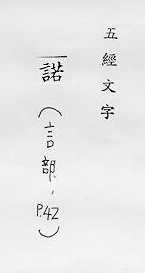 五經文字
諾（言部，P.42）